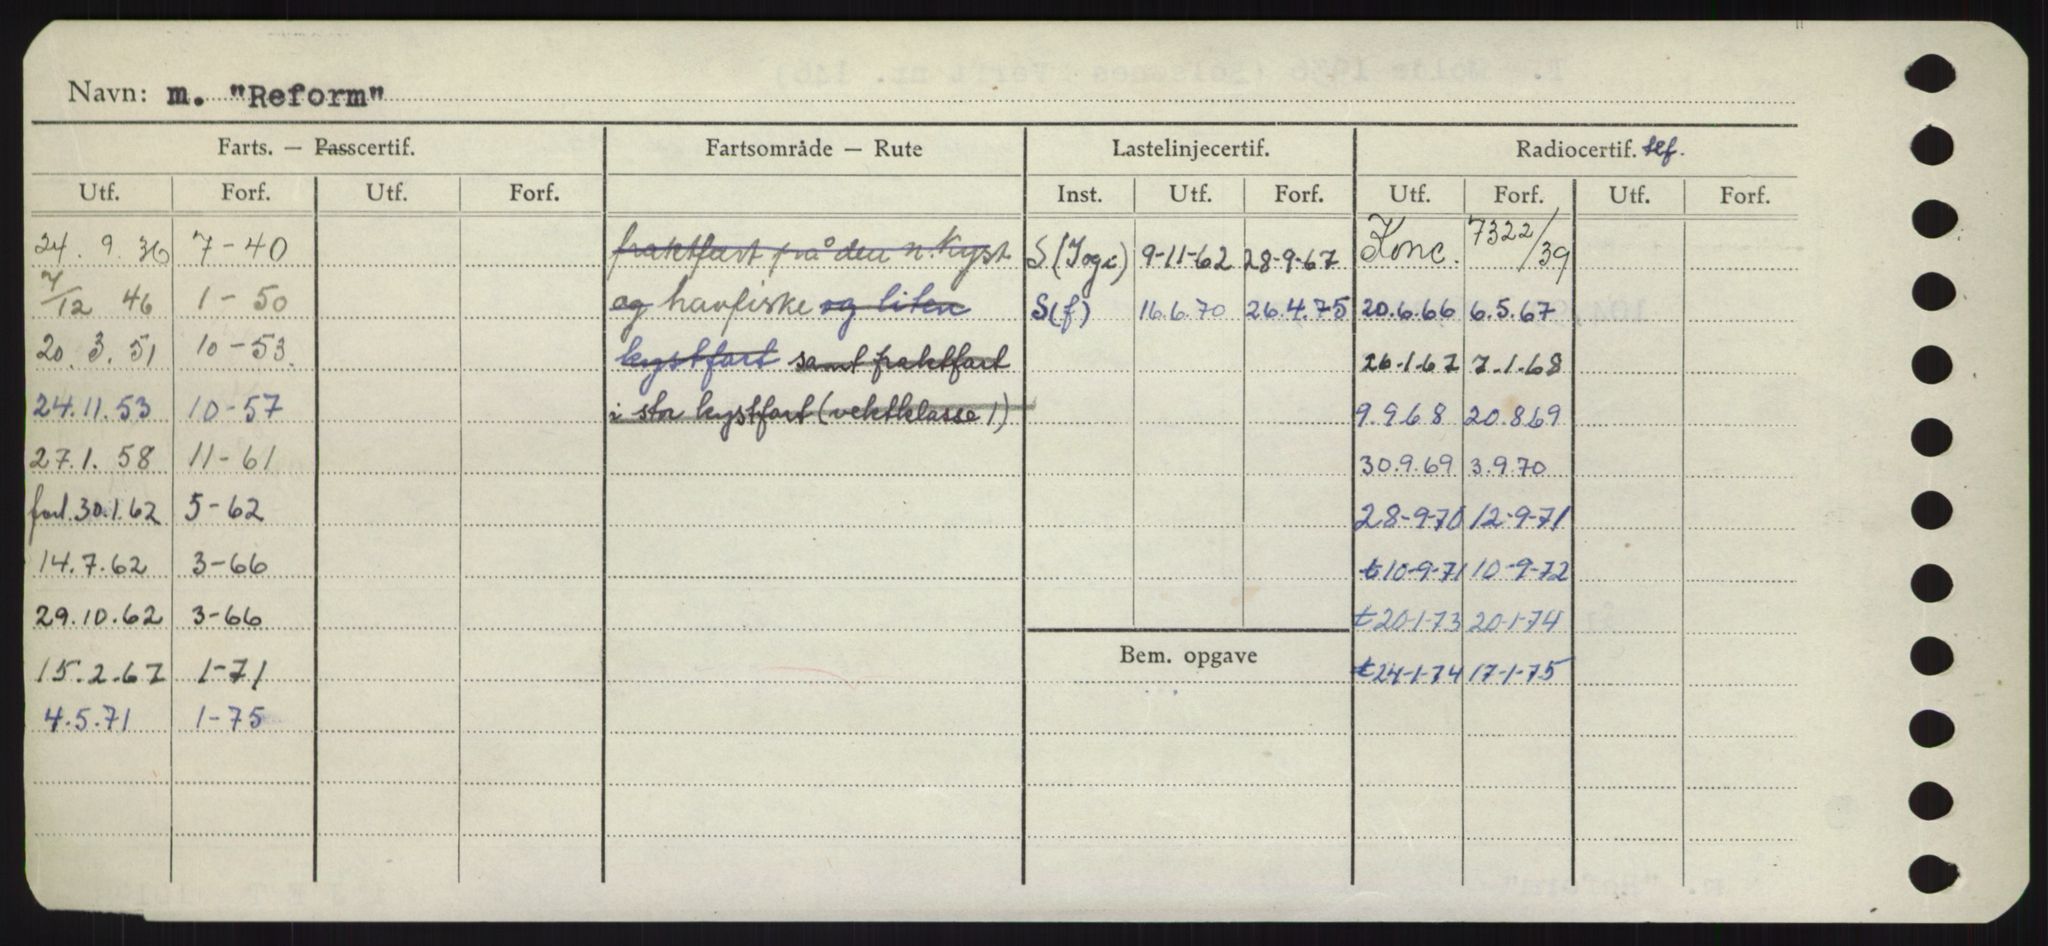 Navn: m. "Reform"
Farts. — Passcertif. Fartsområde — Rute Lastelinjecertif. Radiocertif. tlf.
Utf. Forf. Utf. Forf. Inst. Utf. Forf. Utf. Forf. Utf. Forf.
24. 9. 36 7-40 fraktfart på den n. kyst S (Togi) 9-11-62 28-9-67 Konc. 7322/39
7/12 46 1-50 og havfiske og liten S(f) 16.6.70 26.4.75 20.6.66 6.5.67
20. 3. 51 10-53. kystfart samt fraktfart 26-1-67 7-1-68
24.11.53 10-57 i stor kystfart (vektklasse 1) 9.9.68 20.8.69
27.1. 58 11-61 30.9.69 3.9.70
forl. 30.1.62 5-62 28-9-70 12-9-71
14.7.62 3-66 t 10-9-71 10-9-72
29.10.62 3-66 t 20-1-73 20-1-74
Bem. opgave
15.2.67 1-71 t 24-1-74 17-1-75
4.5.71 1-75